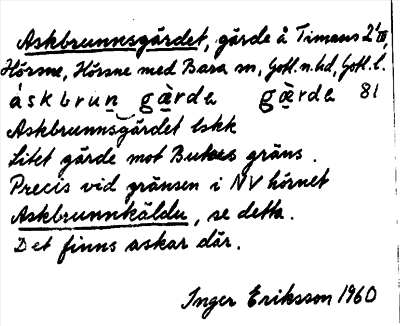 Askbrunnsgärdet, gärde å Timans 2¹ᐟ
Hörsne, Hörsne med Bara sn, Gotl. n. hd, Gotl. l.
áskbrun gærda gærda 81
Askbrunnsgärdet lskk
Litet gärde mot Butes gräns.
Precis vid gränsen i NV hörnet
Askbrunnkäldu, se detta.
Det finns askar där.
Inger Eriksson 1960